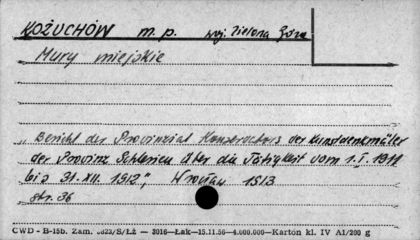 KOŻUCHÓW m. p. woj. Zielona Góra
Mury miejskie
„Bericht der Provinzial Konservators der Kunstdenkmäler
der Provinz Schlesien über die Tätigkeit vom 1.I.1911
bis 31.XII.1912", Wrocław 1913
str. 36
CWD - B-15b. Zam. 3823/S/Łż — 3016—Łak—15.11.56—4.000.000—Karton kl. IV A1/200 g